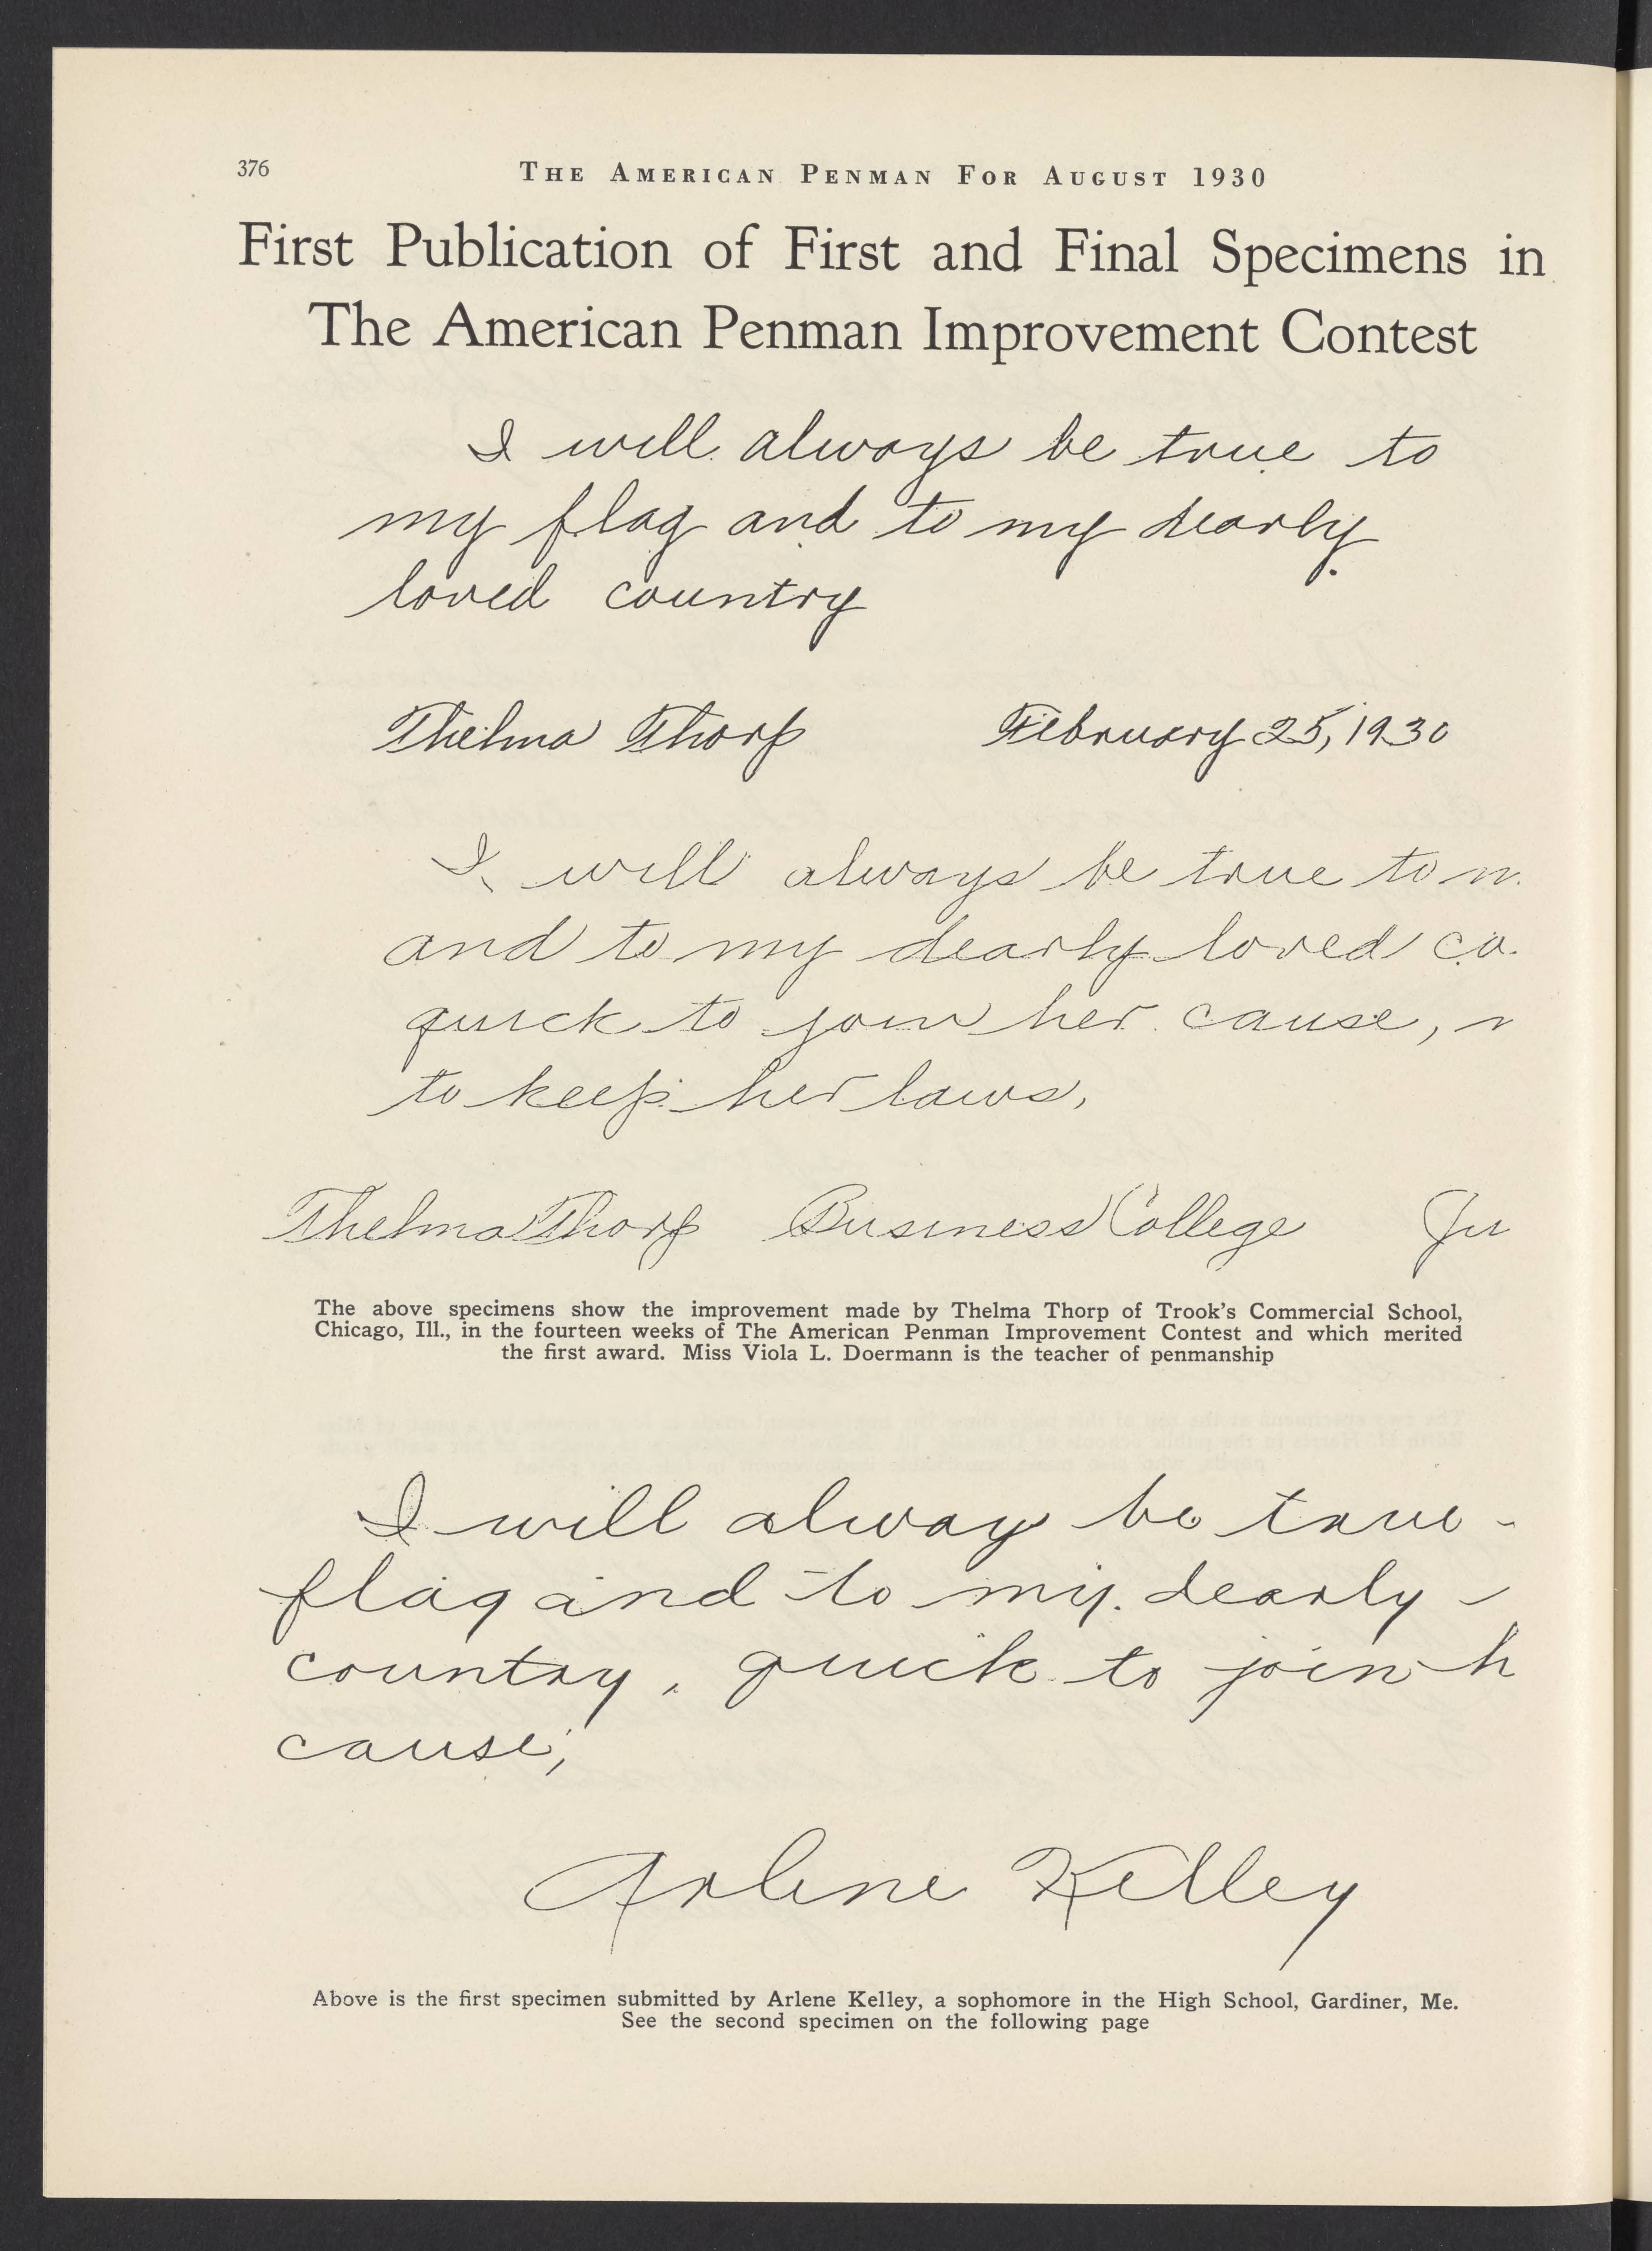 376
THE AMERICAN PENMAN FOR AUGUST 1930
First Publication of First and Final Specimens in
The American Penman Improvement Contest
I will always be true to
my flag and to my dearly
loved country
Thelma Thorp February 25, 1930
I will always be true to m
and to my dearly loved co
quick to join her cause,
to keep her laws,
Thelma Thorp Business College Ju
The above specimens show the improvement made by Thelma Thorp of Trook's Commercial School,
Chicago, Ill., in the fourteen weeks of The American Penman Improvement Contest and which merited
the first award. Miss Viola L. Doermann is the teacher of penmanship
I will alway be true
flag and to my dearly
country, quick to join h
cause,
Arlene Kelley
Above is the first specimen submitted by Arlene Kelley, a sophomore in the High School, Gardiner, Me.
See the second specimen on the following page